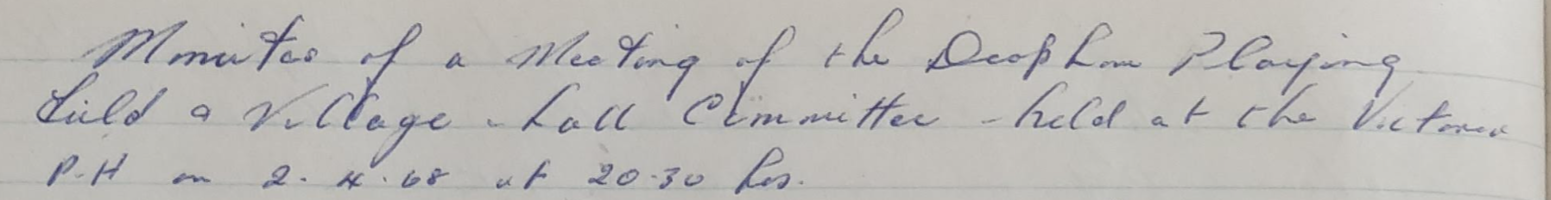 Minutes of a Meeting of the Deopham Playing
Field & Village Hall Committee - held at the Victoria
P.H on 2.4.68 at 20.30 hrs.